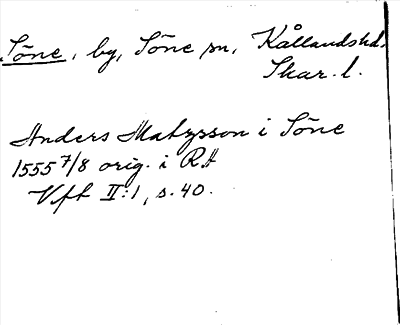 Söne, by, Söne sn, Kållandshd.
Skar. l.
Anders Matzsson i Söne
1555 7/8 orig. i RA
Vft II:1, s. 40.